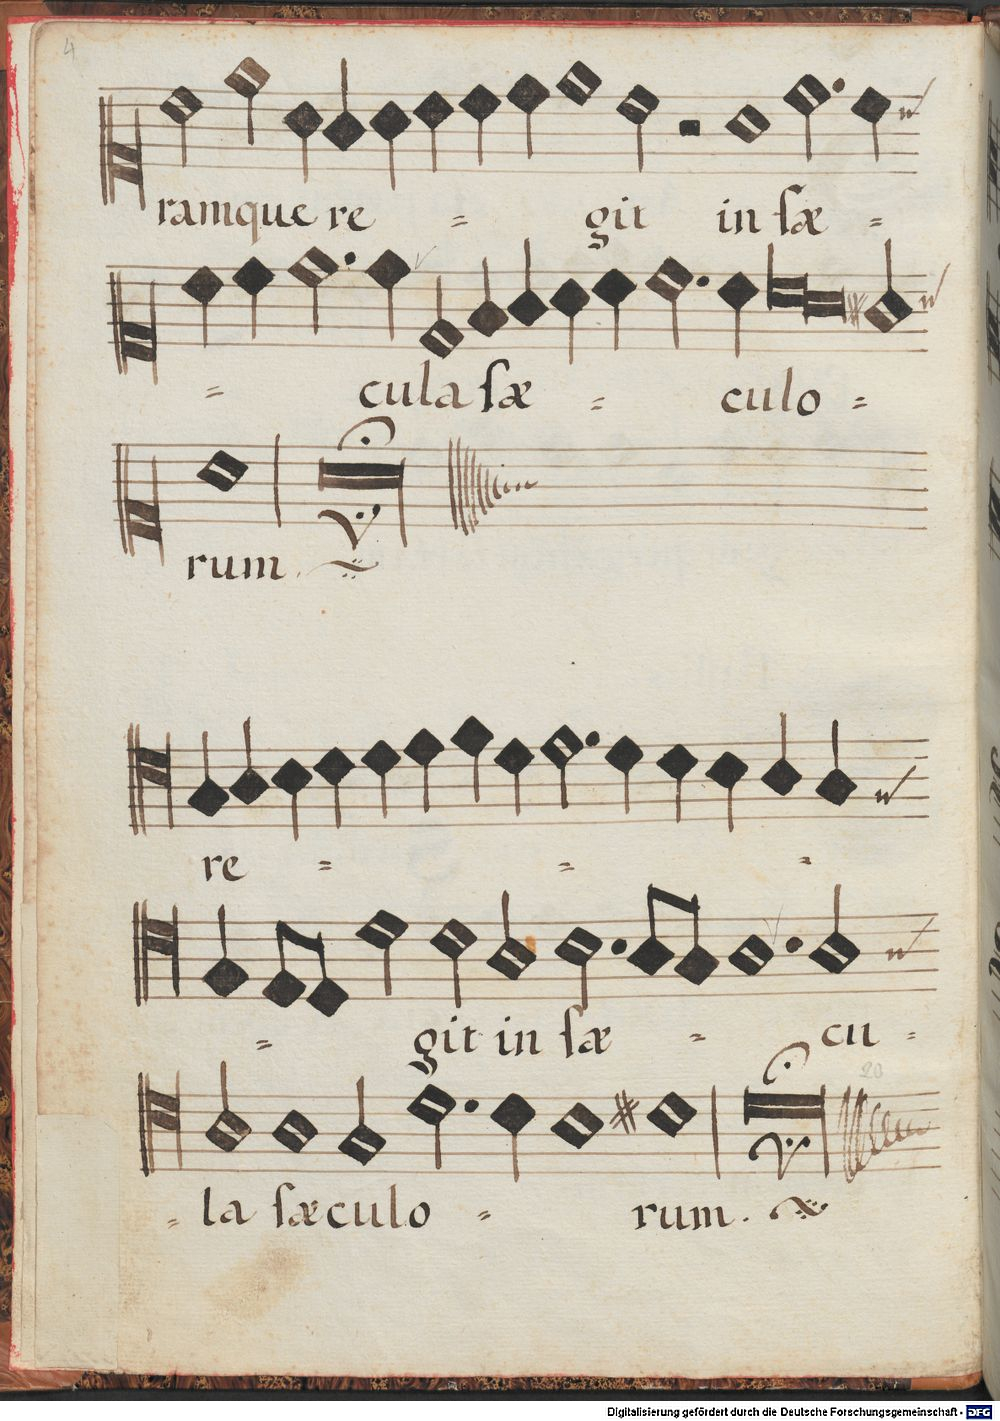 4
ramque re = git in sæ =
= cula sæ = culo =
rum.
re = = =
= git in sæ = cu =
20
= la sæculo = rum.
Digitalisierung gefördert durch die Deutsche Forschungsgemeinschaft - DFG